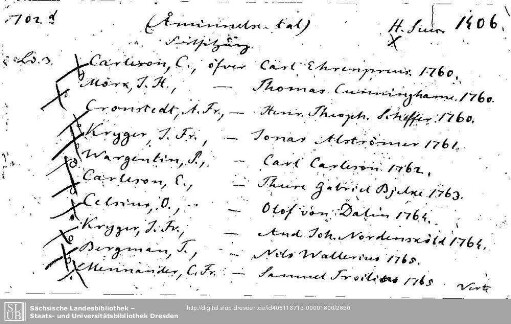 (Åminnelse-tal) 1406.
Carleson, C., öfver Carl Ehrenpreus 1760.
Mörk, J. H., — Thomas Cunninghame. 1760.
Cronstedt, A. Fr., — Henr. Theoph. Scheffer. 1760.
Kryger, J. Fr., — Jonas Alströmer 1761.
Wargentin, P., — Carl Carleson 1762.
Carleson, C., — Thure Gabriel Bjelke 1763.
Celsius, O., — Olof von Dalin 1764.
Kryger, J. Fr., — And. Joh. Nordensköld 1764.
Bergman, T., — Nils Wallerius 1765.
Mennander, C. Fr. — Samuel Troilius 1765
Verte
Sächsische Landesbibliothek –
Staats- und Universitätsbibliothek Dresden